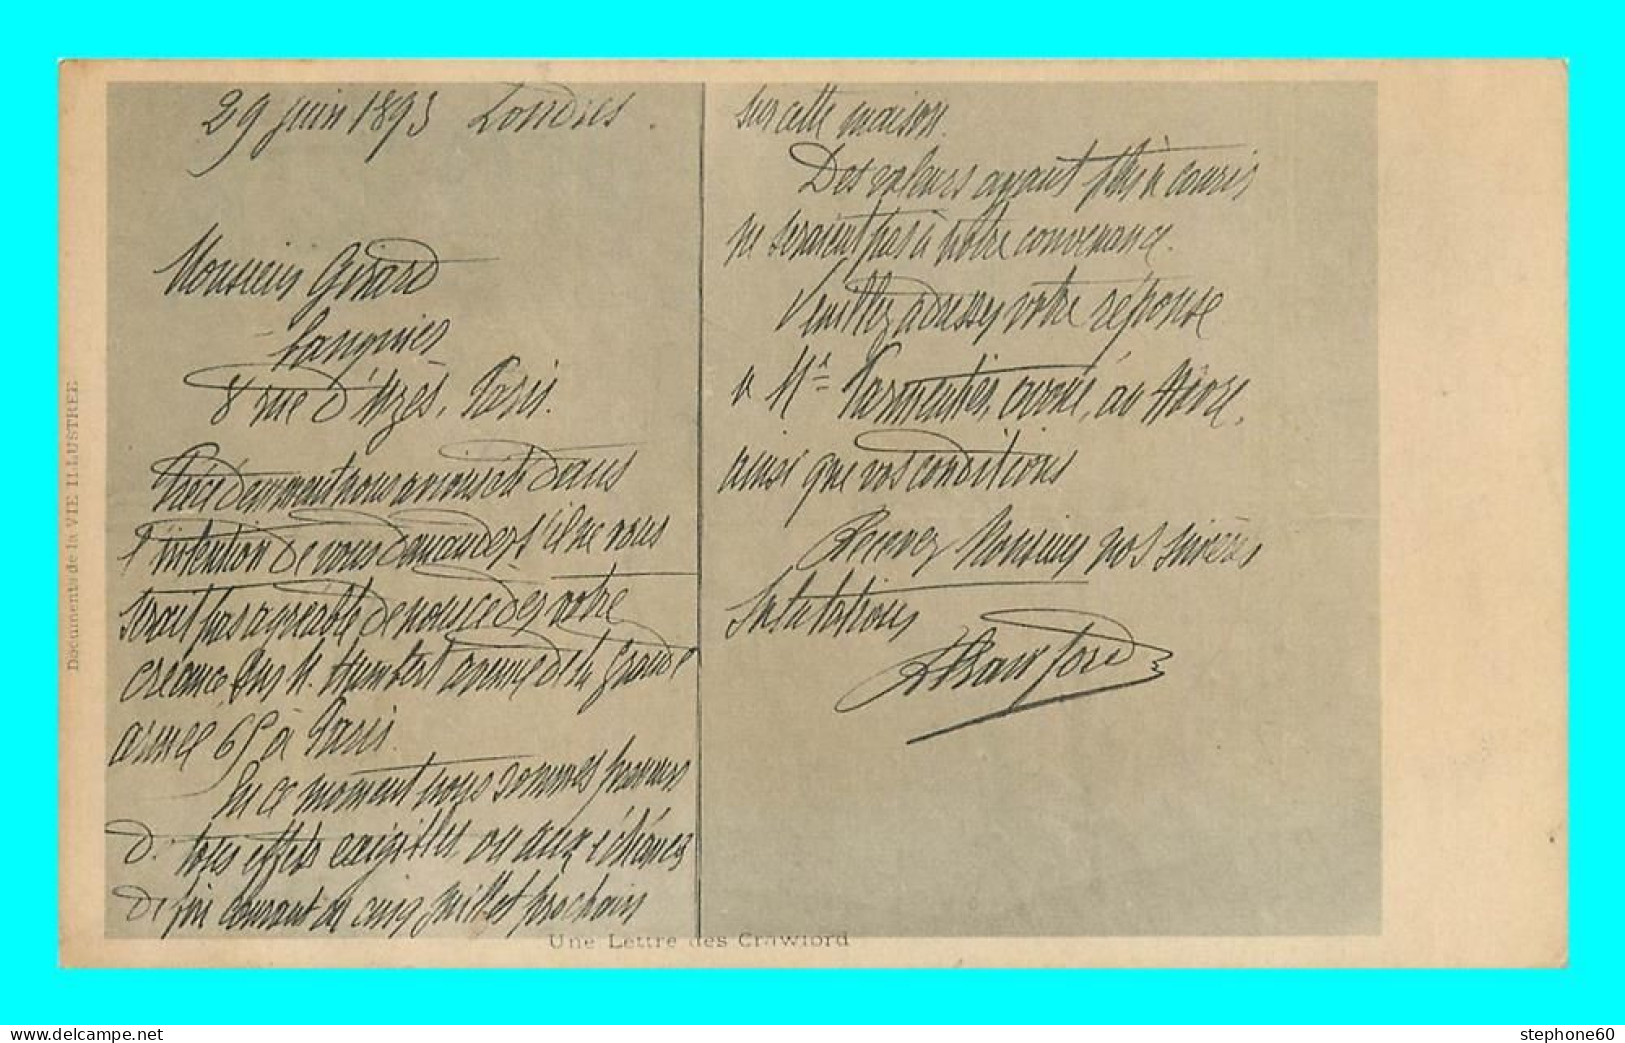 29 juin 1893 Londres.
Monsieur Girard
banquier
8 rue d'Uzès. Paris.
Précédemment nous avions été dans
l'intention de vous demander s'il ne vous
serait pas agréable de nous céder votre
créance sur M. Humbert avenue de la grande
armée 65 à Paris.
En ce moment nous sommes preneurs
de tous effets exigibles ou aux échéances
de fin courant ou cinq juillet prochain
sur cette maison.
Des valeurs ayant plus à courir
ne seraient pas à notre convenance.
Veuillez adresser votre réponse
à Mr Parmentier, avoué, au Hâvre,
ainsi que vos conditions
Recevez Monsieur nos sincères
Salutations
Crawford
Une Lettre des Crawford
Documents de la VIE ILLUSTRÉE
stephone60